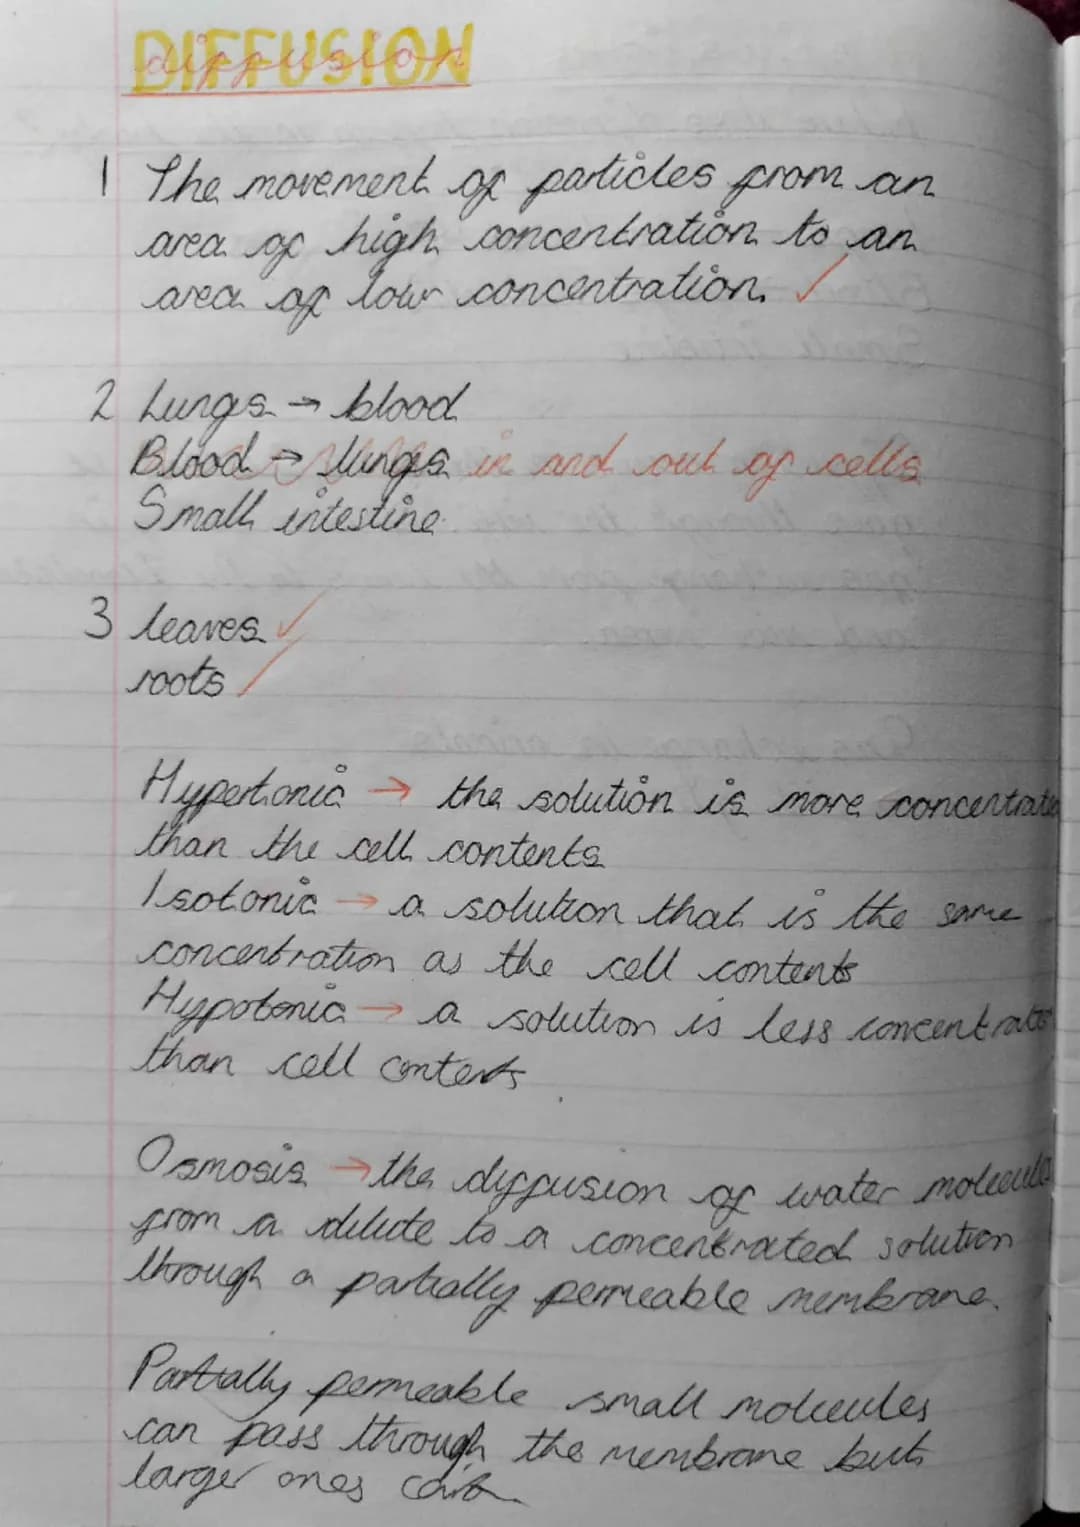 DIFFUSION
diffusion
1 The movement of particles from an
area of high concentration to an
area of low concentration. ✓
2 Lungs → blood
Blood → lungs in and out of cells
Small intestine
3 leaves ✓
roots ✓
Hypertonic → the solution is more concentrated
than the cell contents
Isotonic → a solution that is the same
concentration as the cell contents
Hypotonic → a solution is less concentrated
than cell contents
Osmosis → the diffusion of water molecules
from a dilute to a concentrated solution
through a partially permeable membrane.
Partially permeable small molecules
can pass through the membrane but
larger ones can't